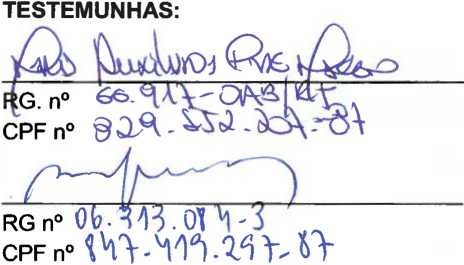 TESTEMUNHAS:
RG. nº 66.917-OAB/RJ
CPF nº 829.552.207-87
RG nº 06.313.084-3
CPF nº 847-419.297-87